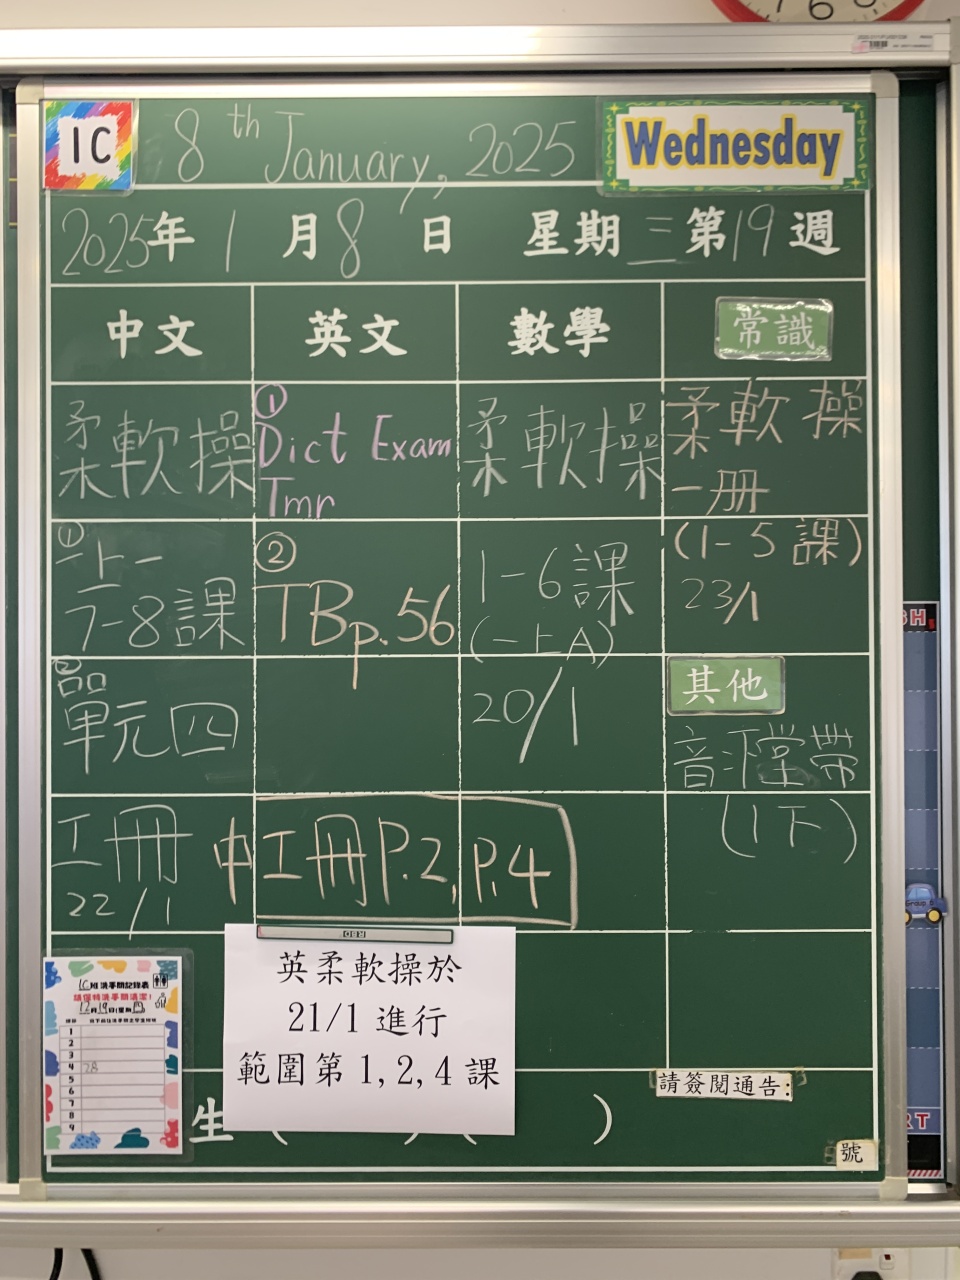 1C
8th January, 2025
Wednesday
2025年1月8日 星期三第19週
中文
英文
數學
常識
柔軟操
①
Dict Exam
Tmr
柔軟操
柔軟操
一册
①
一上一
7-8課
②
TBp.56
1-6課
(一上A)
(1-5課)
23/1
②
單元四
20/1
其他
音
帶
(1下)
工冊
22/1
中工冊P.2, P.4
英柔軟操於
21/1 進行
範圍第 1, 2, 4 課
1C班洗手間記錄表
請保持洗手間清潔!
12月19日(星期四)
1
2
3
4 28
5
6
7
8
9
請簽閱通告:
生 ( ) ( )
號